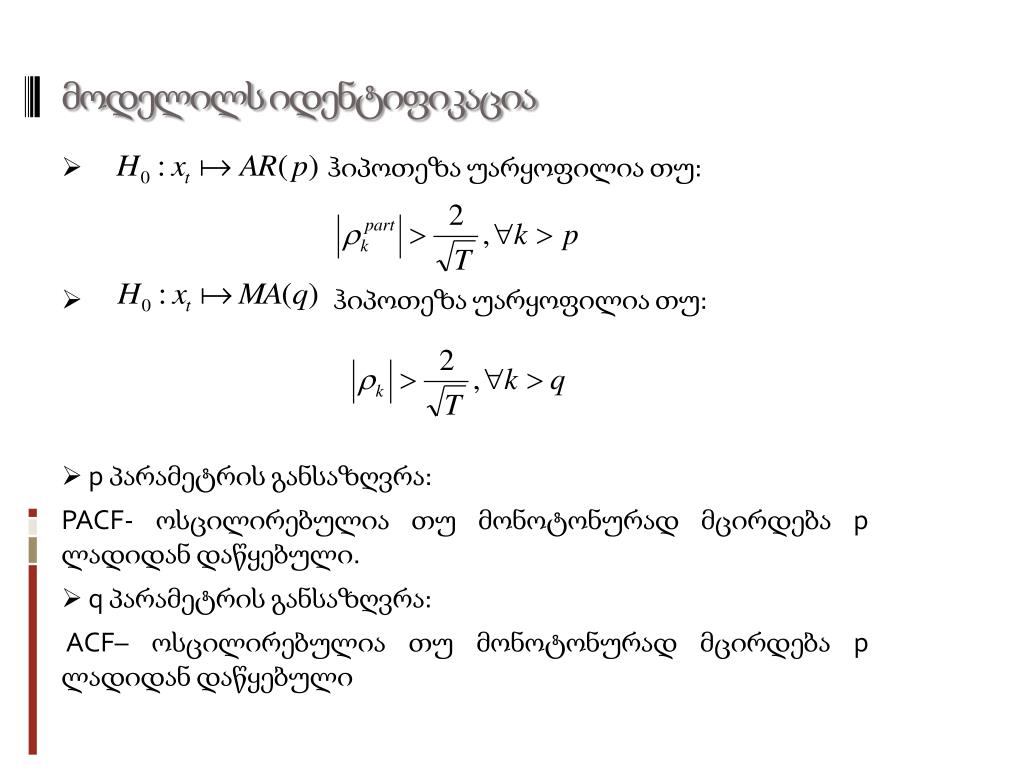 მოდელილს იდენტიფიკაცია
➢ H₀ : xₜ ↦ AR(p) ჰიპოთეზა უარყოფილია თუ:
|ρₖ^part| > 2/√T , ∀k > p
➢ H₀ : xₜ ↦ MA(q) ჰიპოთეზა უარყოფილია თუ:
|ρₖ| > 2/√T , ∀k > q
➢ p პარამეტრის განსაზღვრა:
PACF- ოსცილირებულია თუ მონოტონურად მცირდება p
ლადიდან დაწყებული.
➢ q პარამეტრის განსაზღვრა:
ACF– ოსცილირებულია თუ მონოტონურად მცირდება p
ლადიდან დაწყებული